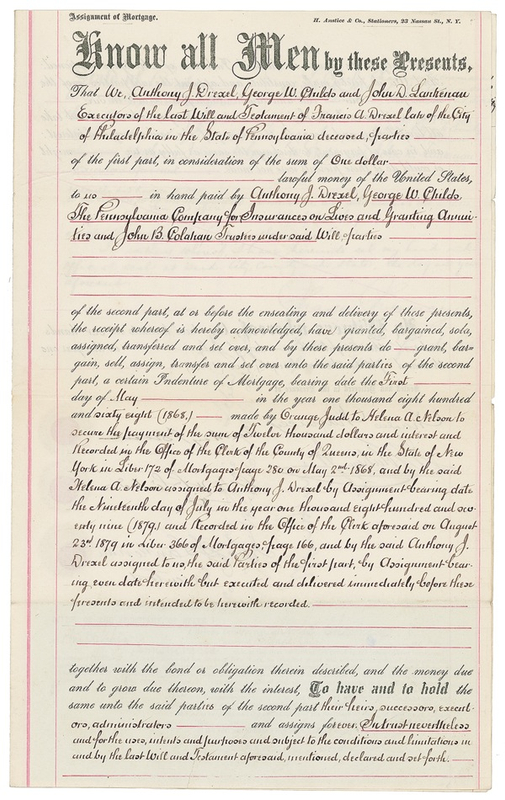 Assignment of Mortgage.
H. Austice & Co., Stationers, 23 Nassau St., N. Y.
Know all Men by these Presents,
That We, Anthony J. Drexel, George W. Childs and John D. Lankenau
Executors of the last Will and Testament of Francis A. Drexel late of the City
of Philadelphia in the State of Pennsylvania deceased, parties
of the first part, in consideration of the sum of One dollar
lawful money of the United States,
to us in hand paid by Anthony J. Drexel, George W. Childs,
The Pennsylvania Company for Insurances on Lives and Granting Annui-
ties and John B. Colahan Trustees under said Will, parties
of the second part, at or before the ensealing and delivery of these presents,
the receipt whereof is hereby acknowledged, have granted, bargained, sold,
assigned, transferred and set over, and by these presents do grant, bar-
gain, sell, assign, transfer and set over unto the said parties of the second
part, a certain Indenture of Mortgage, bearing date the First
day of May in the year one thousand eight hundred
and sixty eight (1868,) made by Orange Judd to Helena A. Nelson to
secure the payment of the sum of Twelve thousand dollars and interest and
Recorded in the Office of the Clerk of the County of Queens, in the State of New
York in Liber 172 of Mortgages page 280 on May 2nd 1868, and by the said
Helena A. Nelson assigned to Anthony J. Drexel by Assignment bearing date
the Nineteenth day of July in the year one thousand eight hundred and sev-
enty nine (1879) and Recorded in the Office of the Clerk aforesaid on August
23d 1879 in Liber 366 of Mortgages, page 166, and by the said Anthony J.
Drexel assigned to us, the said Parties of the first part, by Assignment bear-
ing even date herewith but executed and delivered immediately before these
presents and intended to be herewith recorded.
together with the bond or obligation therein described, and the money due
and to grow due thereon, with the interest, To have and to hold the
same unto the said parties of the second part their heirs, successors, execut-
ors, administrators and assigns forever. In trust nevertheless
and for the uses, intents and purposes and subject to the conditions and limitations in
and by the last Will and Testament aforesaid, mentioned, declared and set forth.